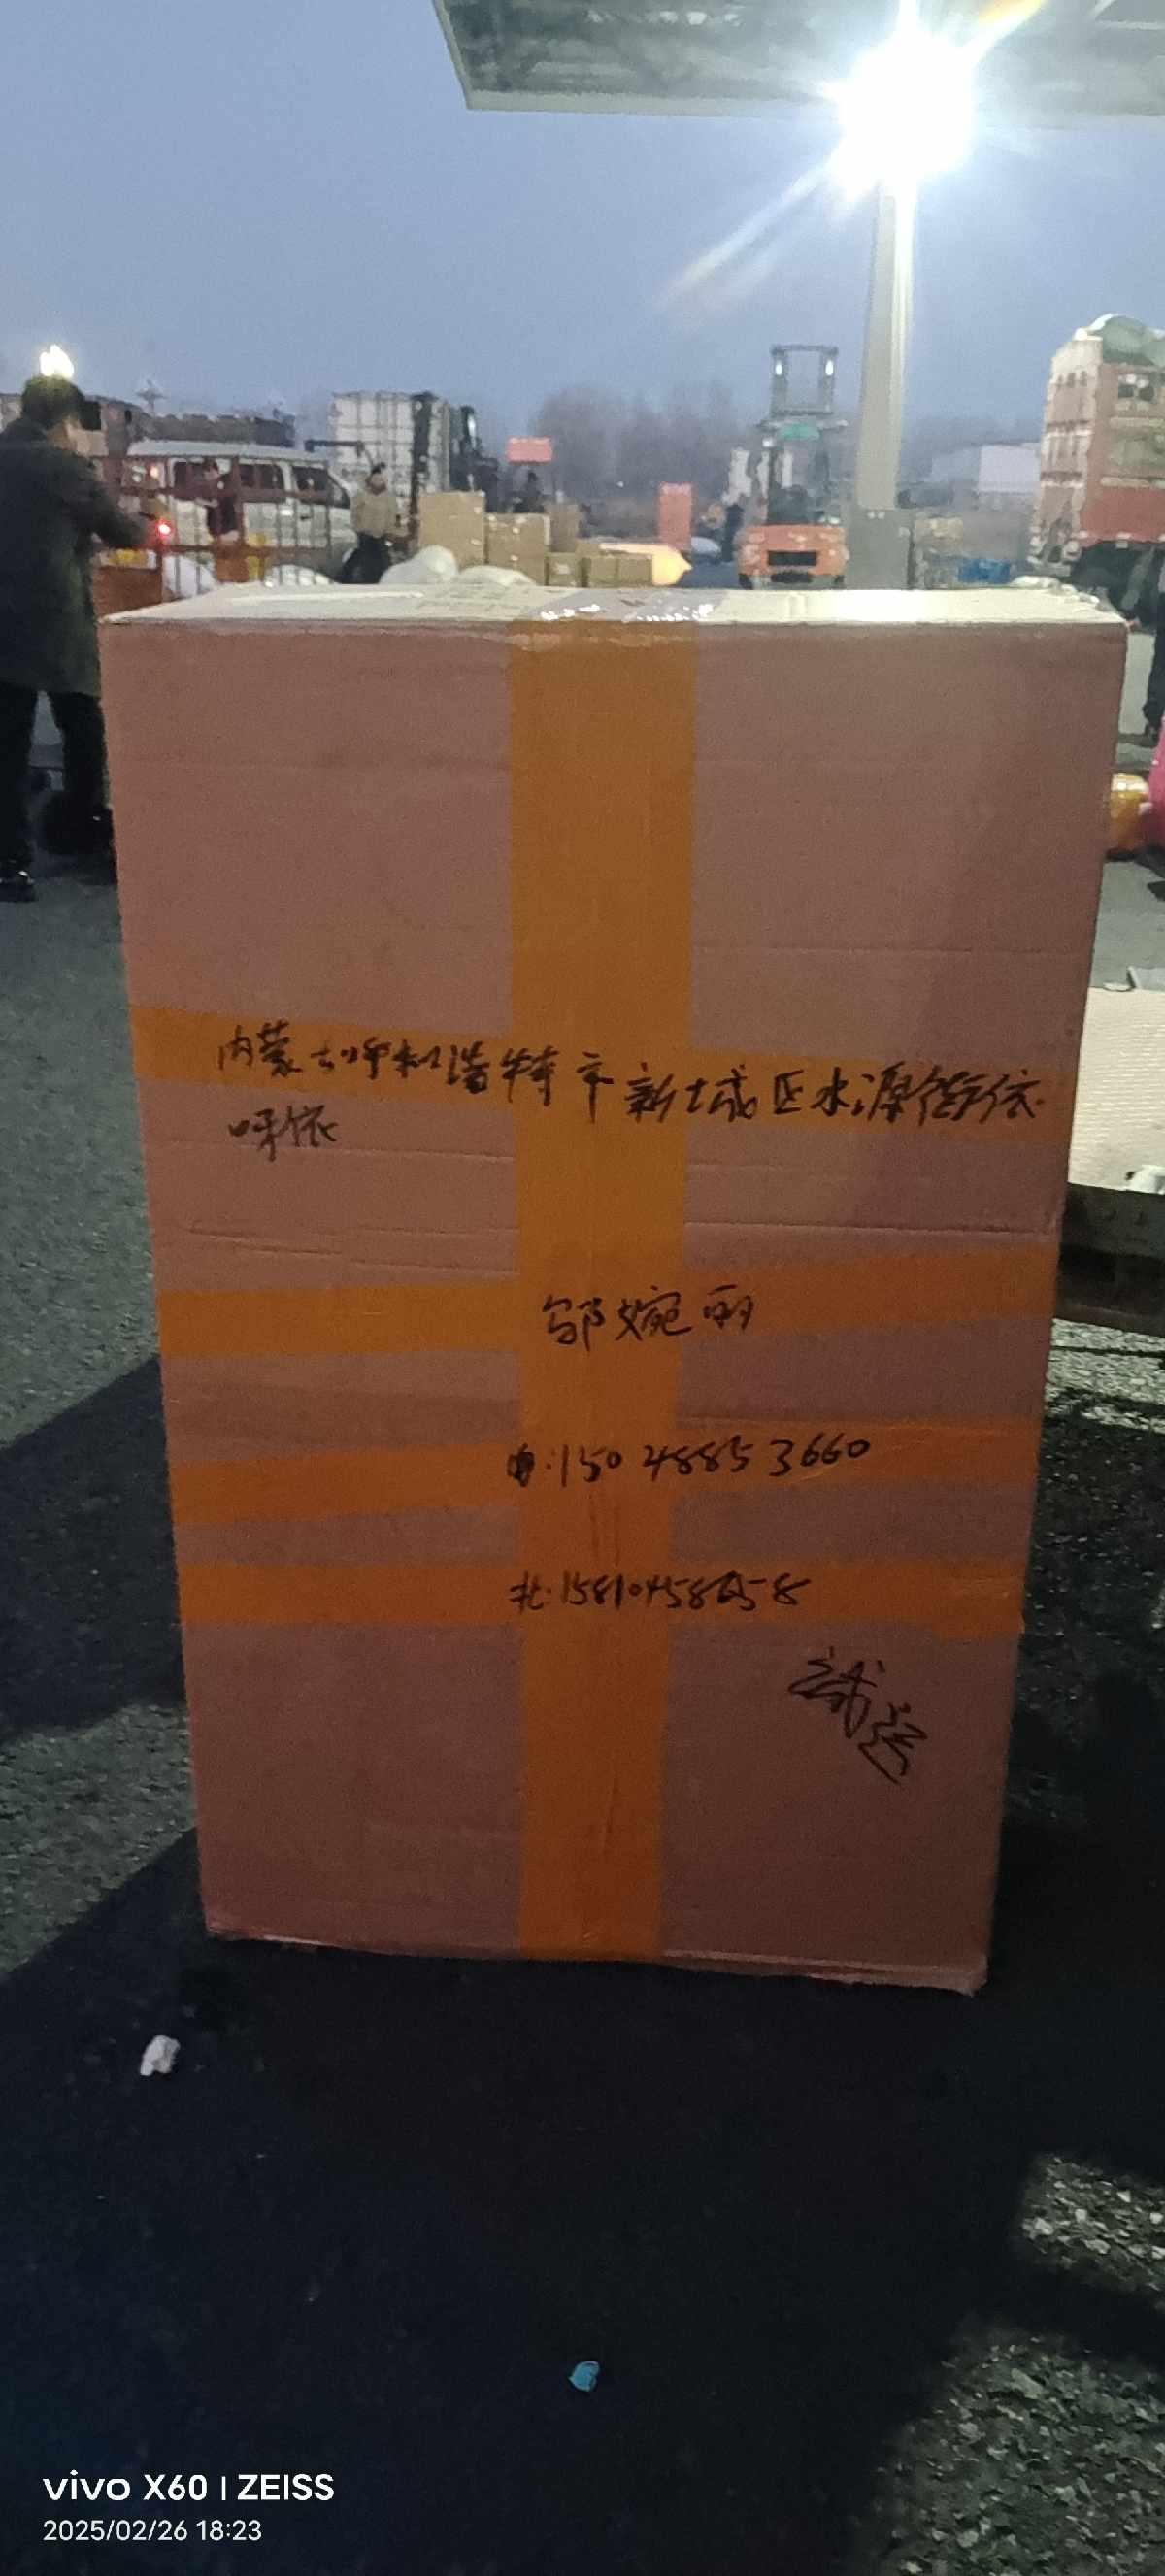 内蒙古呼和浩特市新城区水源街依
呀依
邹婉丽
电:150 4885 3660
北:15810458658
试送
vivo X60 | ZEISS
2025/02/26 18:23